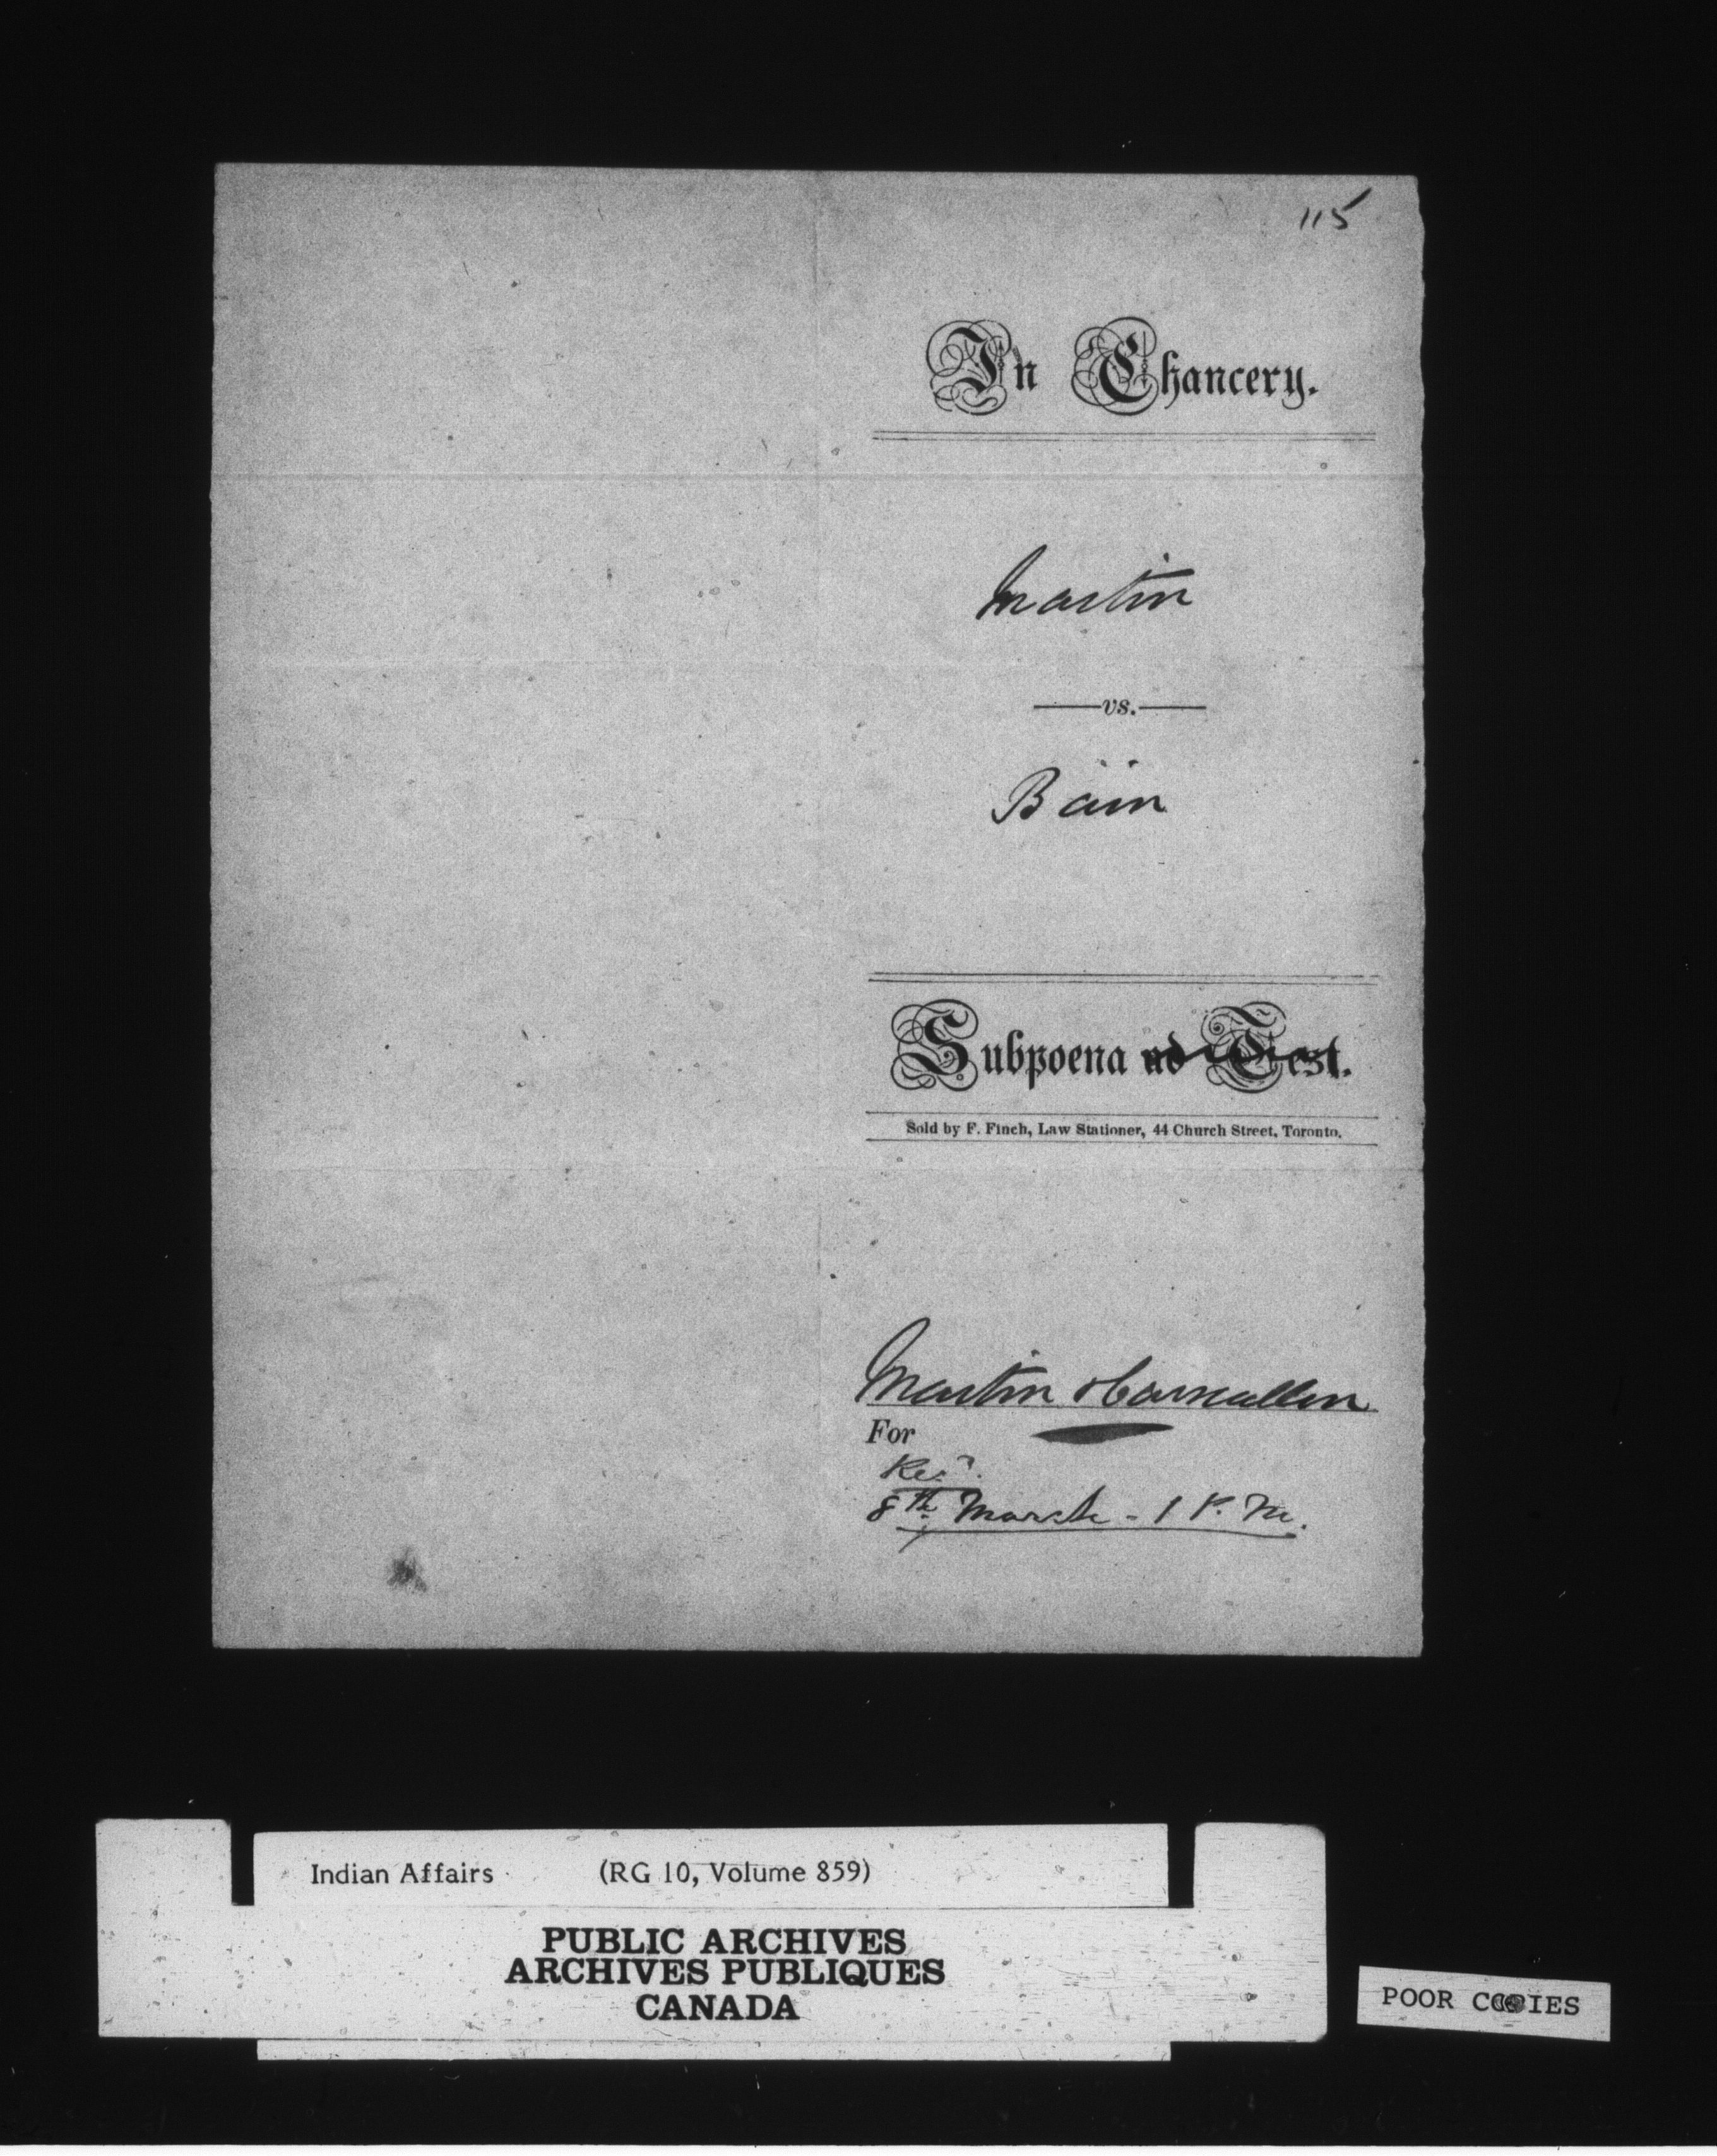 115
In Chancery.
Martin
vs.
Bain
Subpoena ad Test.
Sold by F. Finch, Law Stationer, 44 Church Street, Toronto.
Martin & Carscallen
For
8th March - 1 P. M.
Indian Affairs (RG 10, Volume 859)
PUBLIC ARCHIVES
ARCHIVES PUBLIQUES
CANADA
POOR COPIES